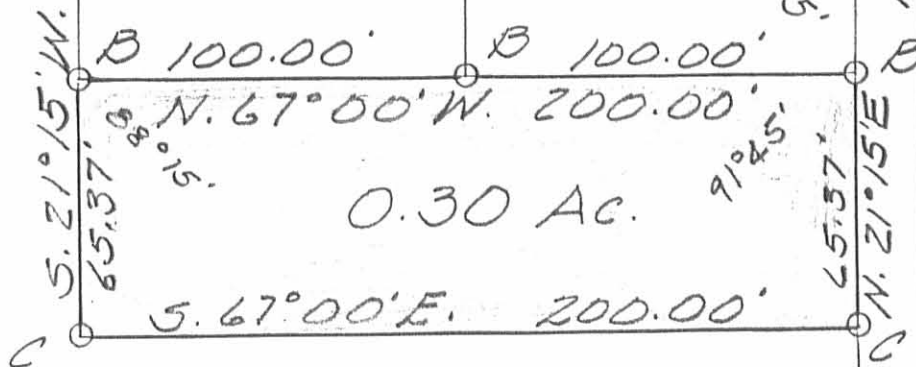 B 100.00' B 100.00' B
N. 67°00' W. 200.00'
S. 21°15' W.
65.37'
88°15'
0.30 Ac.
91°45'
65.37'
N. 21°15' E
S. 67°00' E. 200.00'
C
C